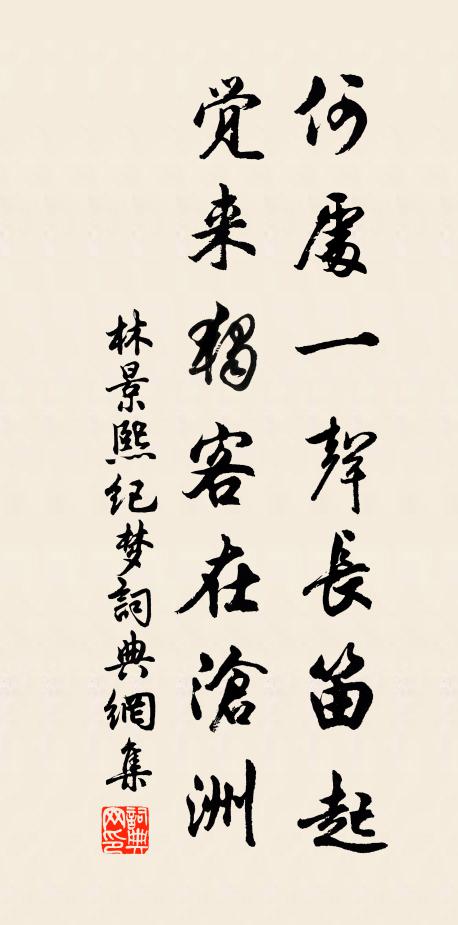 何處一聲長笛起
覚来獨客在滄洲
林景熙纪梦詞典網集
詞典网印